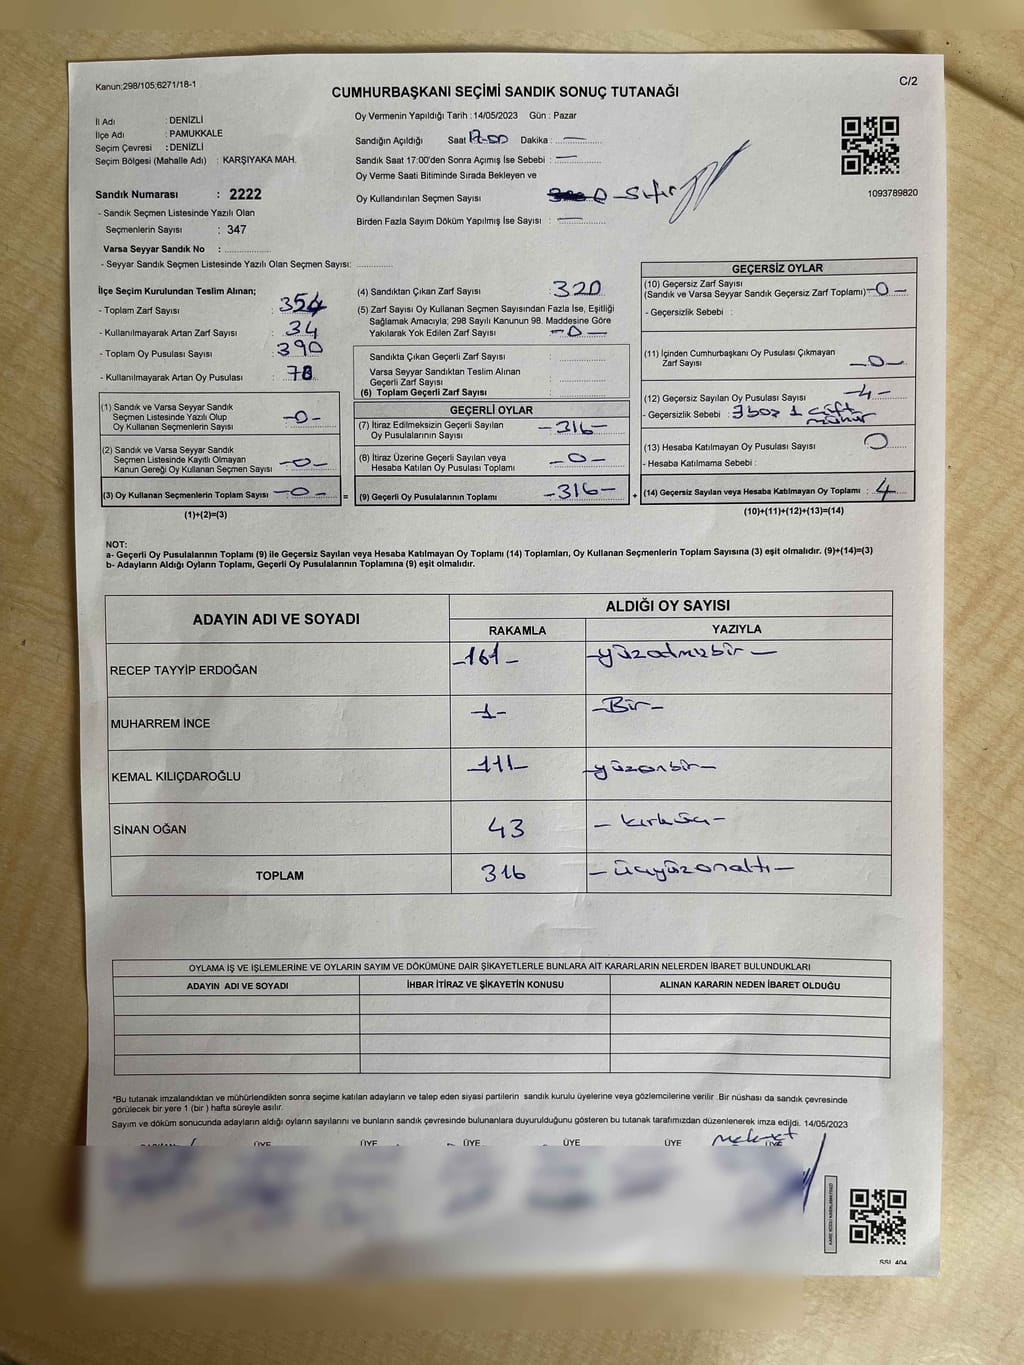 Kanun;298/105;6271/18-1
C/2
CUMHURBAŞKANI SEÇİMİ SANDIK SONUÇ TUTANAĞI
İl Adı : DENİZLİ
İlçe Adı : PAMUKKALE
Seçim Çevresi : DENİZLİ
Seçim Bölgesi (Mahalle Adı) : KARŞIYAKA MAH.
Sandık Numarası : 2222
- Sandık Seçmen Listesinde Yazılı Olan
Seçmenlerin Sayısı : 347
Varsa Seyyar Sandık No :
- Seyyar Sandık Seçmen Listesinde Yazılı Olan Seçmen Sayısı:
Oy Vermenin Yapıldığı Tarih : 14/05/2023 Gün : Pazar
Sandığın Açıldığı Saat 17.00 Dakika :
Sandık Saat 17:00'den Sonra Açımış İse Sebebi :
Oy Verme Saati Bitiminde Sırada Bekleyen ve
Oy Kullandırılan Seçmen Sayısı 0 - Sıfır
Birden Fazla Sayım Döküm Yapılmış İse Sayısı :
1093789820
İlçe Seçim Kurulundan Teslim Alınan;
- Toplam Zarf Sayısı : 354
- Kullanılmayarak Artan Zarf Sayısı : 34
- Toplam Oy Pusulası Sayısı : 390
- Kullanılmayarak Artan Oy Pusulası :
(1) Sandık ve Varsa Seyyar Sandık
Seçmen Listesinde Yazılı Olup
Oy Kullanan Seçmenlerin Sayısı -0-
(2) Sandık ve Varsa Seyyar Sandık
Seçmen Listesinde Kayıtlı Olmayan
Kanun Gereği Oy Kullanan Seçmen Sayısı -0-
(3) Oy Kullanan Seçmenlerin Toplam Sayısı -0- =
(1)+(2)=(3)
(4) Sandıktan Çıkan Zarf Sayısı : 320
(5) Zarf Sayısı Oy Kullanan Seçmen Sayısından Fazla İse, Eşitliği
Sağlamak Amacıyla; 298 Sayılı Kanunun 98. Maddesine Göre
Yakılarak Yok Edilen Zarf Sayısı -0-
Sandıkta Çıkan Geçerli Zarf Sayısı :
Varsa Seyyar Sandıktan Teslim Alınan
Geçerli Zarf Sayısı :
(6) Toplam Geçerli Zarf Sayısı :
GEÇERLİ OYLAR
(7) İtiraz Edilmeksizin Geçerli Sayılan
Oy Pusulalarının Sayısı -316-
(8) İtiraz Üzerine Geçerli Sayılan veya
Hesaba Katılan Oy Pusulası Toplamı -0-
(9) Geçerli Oy Pusulalarının Toplamı -316- +
GEÇERSİZ OYLAR
(10) Geçersiz Zarf Sayısı
(Sandık ve Varsa Seyyar Sandık Geçersiz Zarf Toplamı) -0-
- Geçersizlik Sebebi :
(11) İçinden Cumhurbaşkanı Oy Pusulası Çıkmayan
Zarf Sayısı -0-
(12) Geçersiz Sayılan Oy Pusulası Sayısı -4-
- Geçersizlik Sebebi : 3 boş 1 çift
mühür
(13) Hesaba Katılmayan Oy Pusulası Sayısı 0
- Hesaba Katılmama Sebebi :
(14) Geçersiz Sayılan veya Hesaba Katılmayan Oy Toplamı : 4
(10)+(11)+(12)+(13)=(14)
NOT:
a- Geçerli Oy Pusulalarının Toplamı (9) ile Geçersiz Sayılan veya Hesaba Katılmayan Oy Toplamı (14) Toplamları, Oy Kullanan Seçmenlerin Toplam Sayısına (3) eşit olmalıdır. (9)+(14)=(3)
b- Adayların Aldığı Oyların Toplamı, Geçerli Oy Pusulalarının Toplamına (9) eşit olmalıdır.
ADAYIN ADI VE SOYADI
ALDIĞI OY SAYISI
RAKAMLA YAZIYLA
RECEP TAYYİP ERDOĞAN -161- -yüzatmışbir-
MUHARREM İNCE -1- -Bir-
KEMAL KILIÇDAROĞLU -111- -yüzonbir-
SİNAN OĞAN 43 - kırküç -
TOPLAM 316 - üçyüzonaltı -
OYLAMA İŞ VE İŞLEMLERİNE VE OYLARIN SAYIM VE DÖKÜMÜNE DAİR ŞİKAYETLERLE BUNLARA AİT KARARLARIN NELERDEN İBARET BULUNDUKLARI
ADAYIN ADI VE SOYADI İHBAR İTİRAZ VE ŞİKAYETİN KONUSU ALINAN KARARIN NEDEN İBARET OLDUĞU
*Bu tutanak imzalandıktan ve mühürlendikten sonra seçime katılan adayların ve talep eden siyasi partilerin sandık kurulu üyelerine veya gözlemcilerine verilir .Bir nüshası da sandık çevresinde
görülecek bir yere 1 (bir ) hafta süreyle asılır.
Sayım ve döküm sonucunda adayların aldığı oyların sayılarını ve bunların sandık çevresinde bulunanlara duyurulduğunu gösteren bu tutanak tarafımızdan düzenlenerek imza edildi. 14/05/2023
ÜYE ÜYE ÜYE ÜYE ÜYE ÜYE
Mehmet